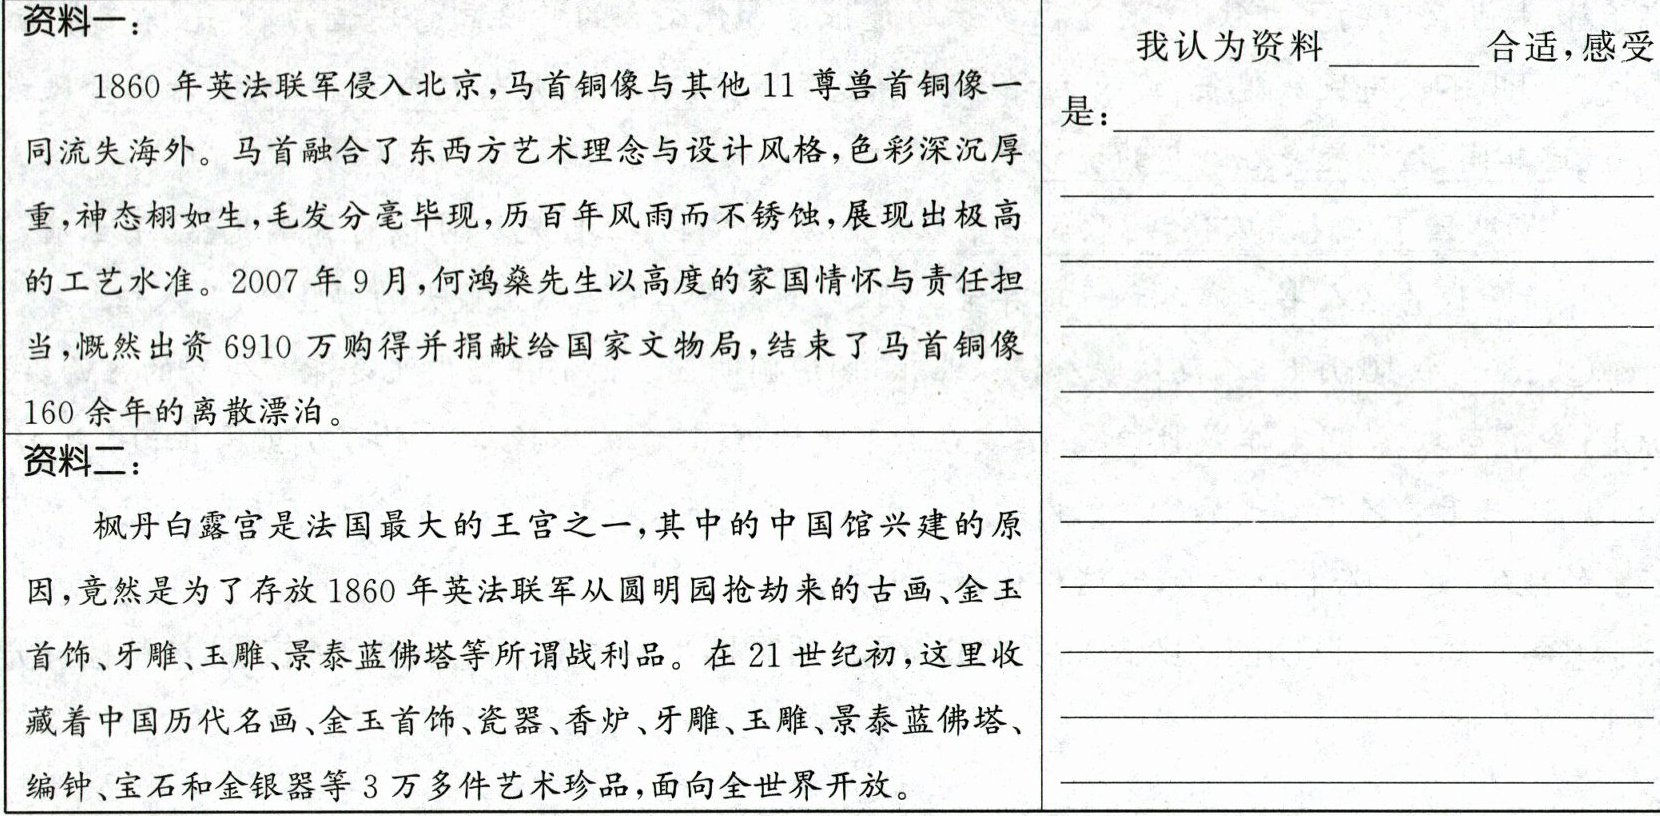 资料一：
1860 年英法联军侵入北京，马首铜像与其他 11 尊兽首铜像一
同流失海外。马首融合了东西方艺术理念与设计风格，色彩深沉厚
重，神态栩如生，毛发分毫毕现，历百年风雨而不锈蚀，展现出极高
的工艺水准。2007 年 9 月，何鸿燊先生以高度的家国情怀与责任担
当，慨然出资 6910 万购得并捐献给国家文物局，结束了马首铜像
160 余年的离散漂泊。
资料二：
枫丹白露宫是法国最大的王宫之一，其中的中国馆兴建的原
因，竟然是为了存放 1860 年英法联军从圆明园抢劫来的古画、金玉
首饰、牙雕、玉雕、景泰蓝佛塔等所谓战利品。在 21 世纪初，这里收
藏着中国历代名画、金玉首饰、瓷器、香炉、牙雕、玉雕、景泰蓝佛塔、
编钟、宝石和金银器等 3 万多件艺术珍品，面向全世界开放。
我认为资料________合适，感受
是：